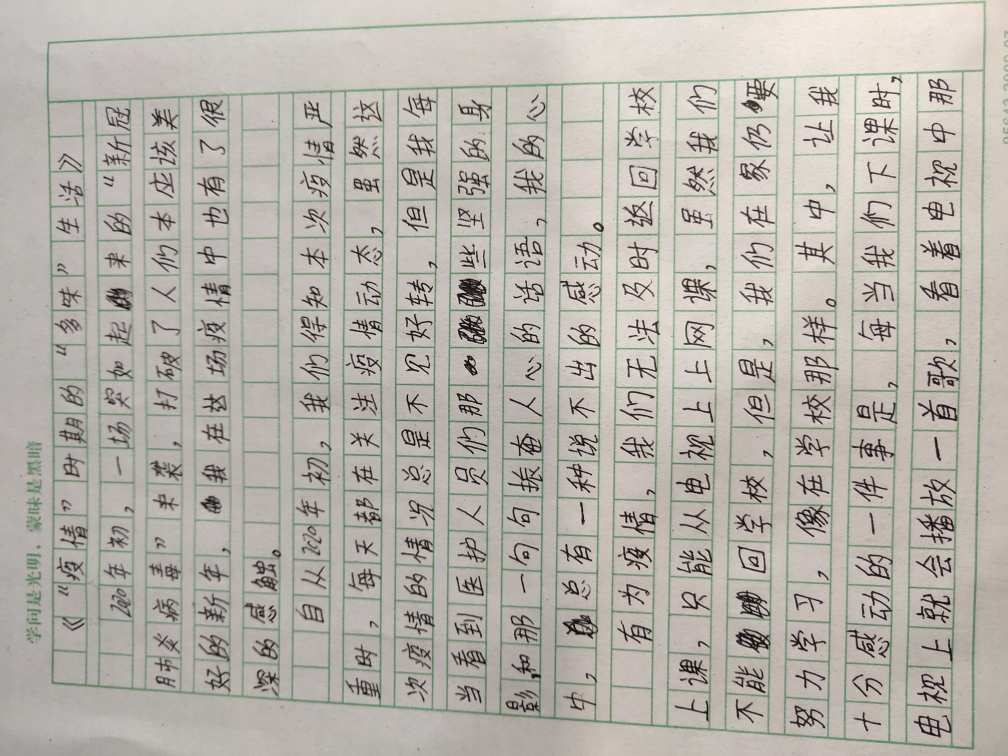 学问是光明，蒙昧是黑暗
《“疫情”时期的“多味”生活》
2020年初，一场突如起来的“新冠
肺炎病毒”来袭，打破了人们本应该美
好的新年，我在这场疫情中也有了很
深的感触。
自从2020年初，我们得知本次疫情严
重时，每天都在关注疫情动态，虽然这
次疫情的情况总是不见好转，但是我每
当看到医护人员们那些坚强的身
影，和那一句句振奋人心的话语，我的心
中，总有一种说不出的感动。
有为疫情，我们无法及时返回学校
上课，只能从电视上上网课，虽然我们
不能回学校，但是，我们在家仍要
努力学习，像在学校那样。其中，让我
十分感动的一件事是，每当我们下课时，
电视上就会播放一首歌，看着电视中那